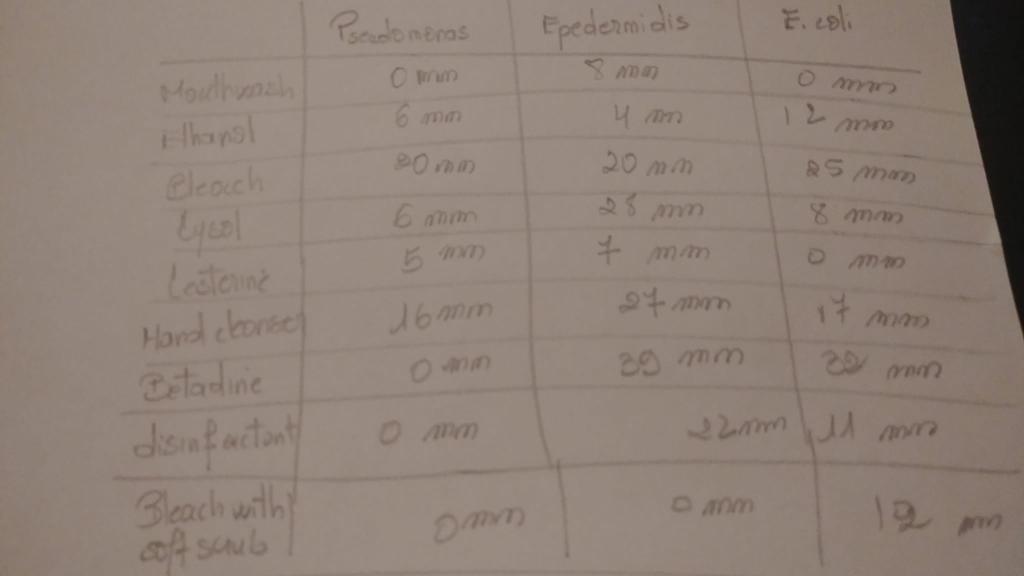 Pseudomonas Epedermidis E. coli.
Mouthwash 0 mm 8 mm 0 mm
Ethanol 6 mm 4 mm 12 mm
Bleach 20 mm 20 mm 25 mm
Lysol 6 mm 28 mm 8 mm
Lesterine 5 mm 7 mm 0 mm
Hand cleanser 16 mm 27 mm 17 mm
Betadine 0 mm 39 mm 32 mm
disinfactant 0 mm 22 mm 11 mm
Bleach with
soft scrub 0 mm 0 mm 12 mm